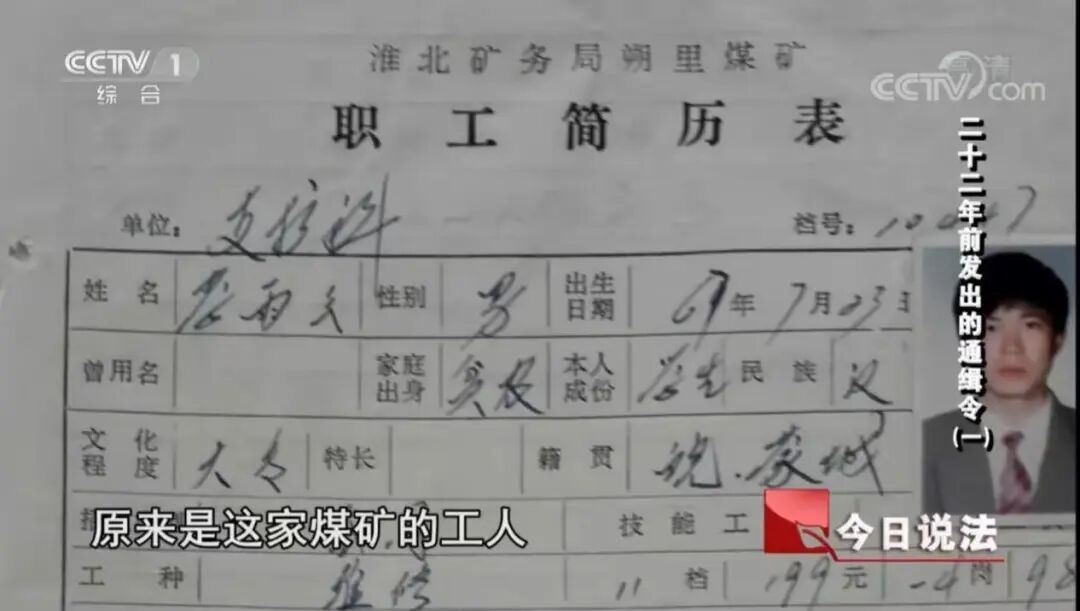 CCTV 1
综合
高清
CCTV.com
二十二年前发出的通缉令(一)
淮北矿务局朔里煤矿
职工简历表
单位:
档号:
姓名 性别 男 出生日期 69年7月23日
曾用名 家庭出身 贫农 本人成份 学生 民族 汉
文化程度 大专 特长 籍贯 皖.蒙城
技能工
原来是这家煤矿的工人
今日说法
工种 维修 11档 199元